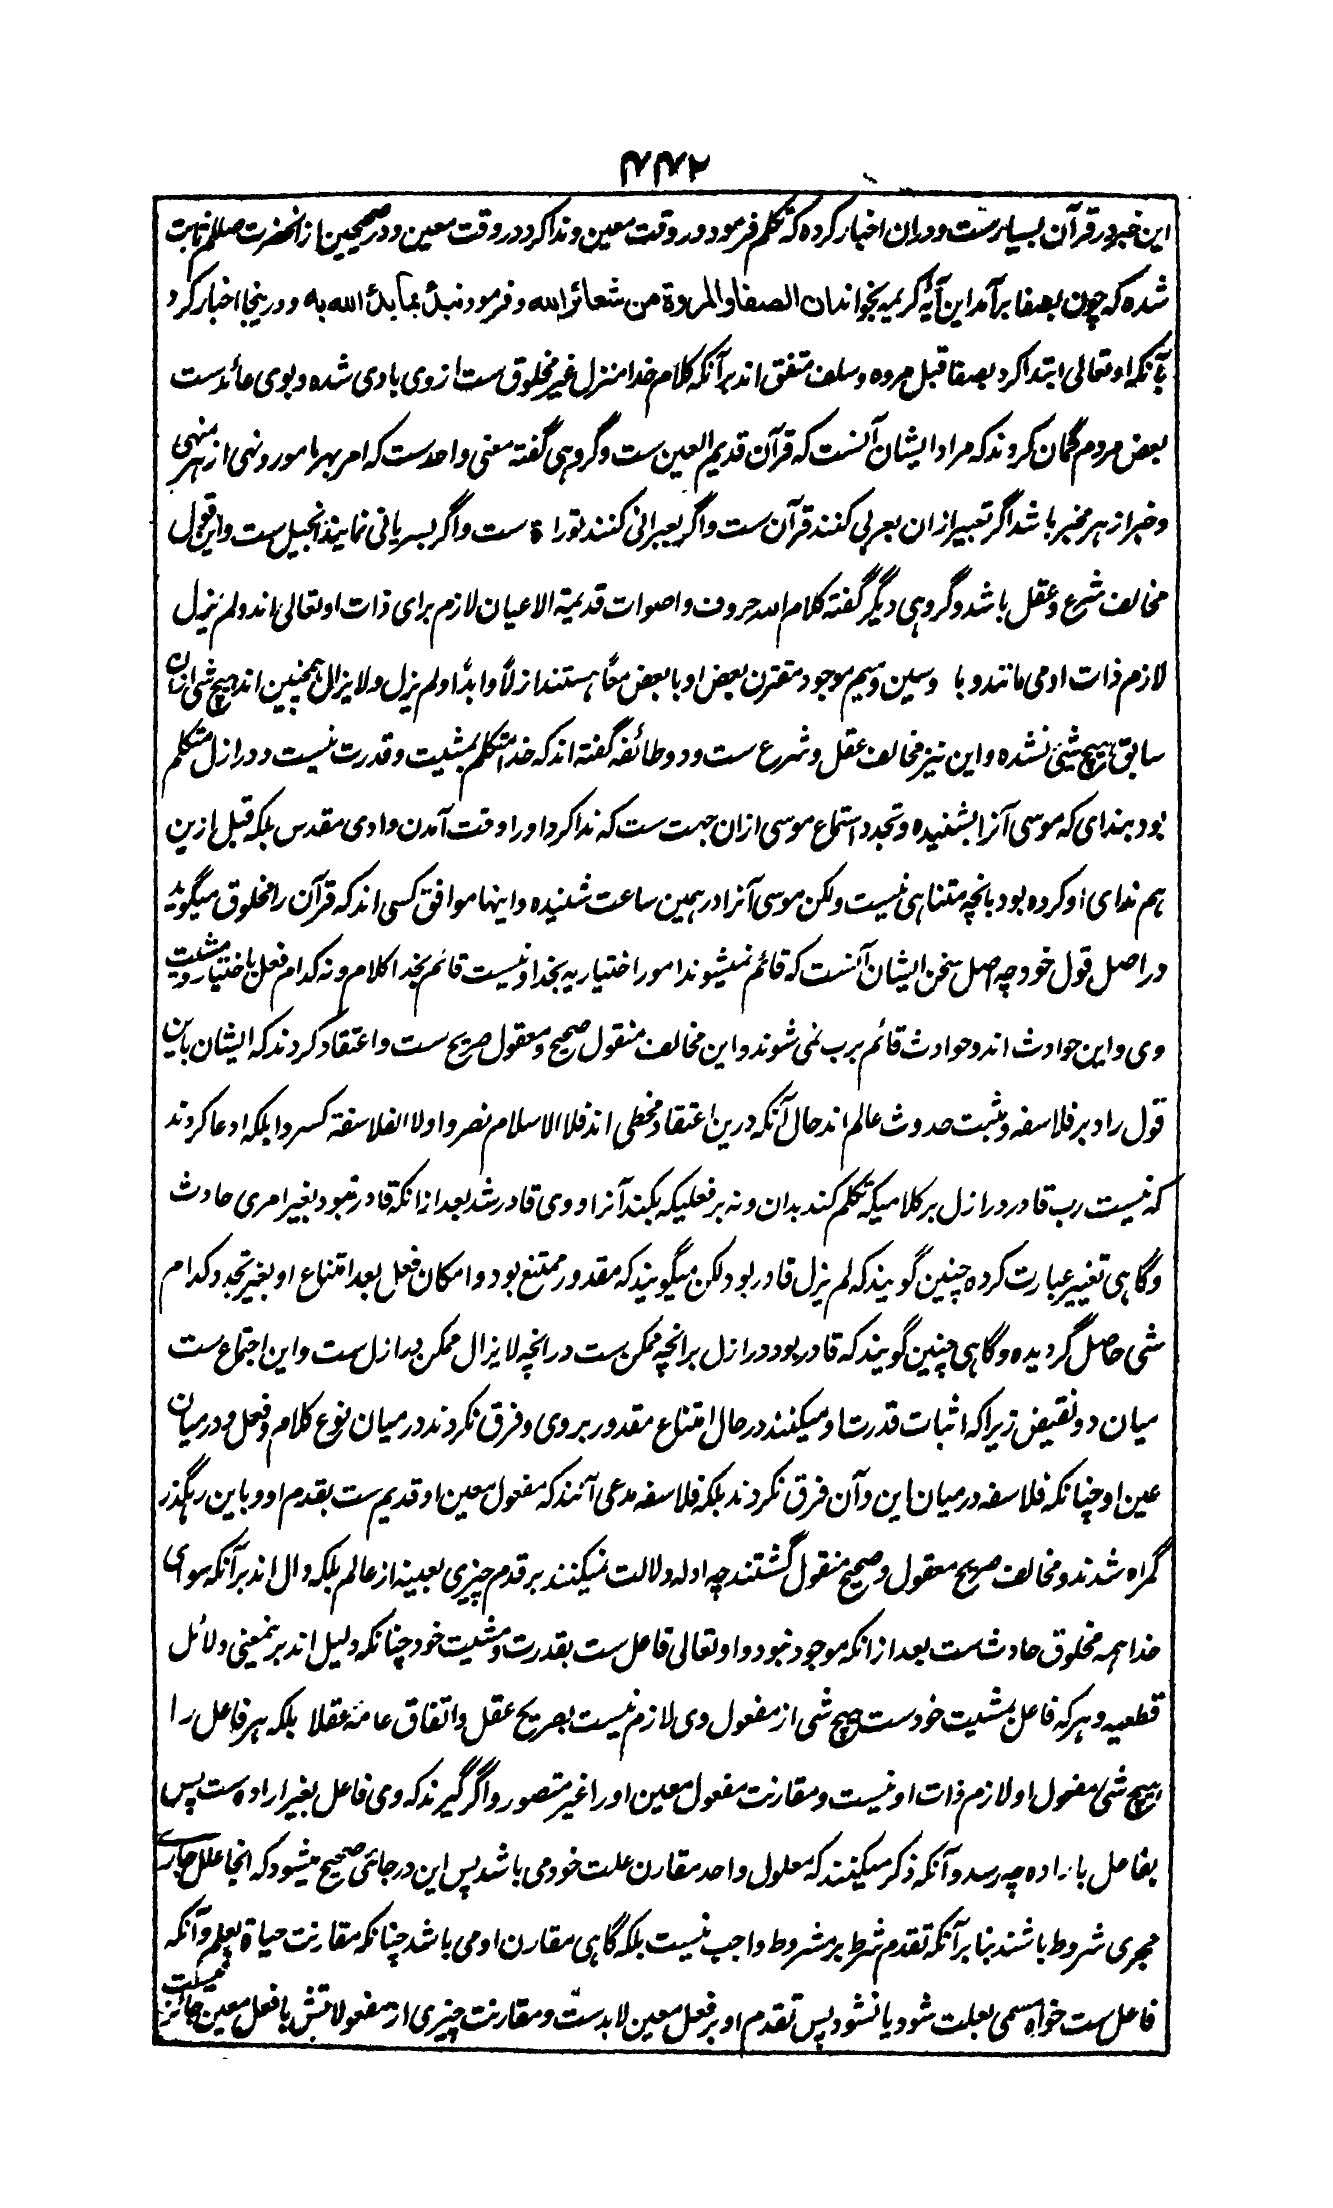 ۴۴۲
این خبر در قرآن بسیارست و دران اخبار کرده که تکلم فرمود در وقت معین و ندا کرد در وقت معین و در صحیحین از آنحضرت صللم ثابت
شده که چون بصفا برآمد این آیۀ کریمه بخواند ان الصفا والمروة من شعائر الله و فرمود نبدأ بما بدأ الله به و درینجا اخبار کرد
بآنکه او تعالی ابتدا کرد بصفا قبل مروه و سلف متفق اند برآنکه کلام خدا منزل غیر مخلوق ست از وی بادی شده و بوی عائدست
بعض مردم گمان کروند که مراد ایشان آنست که قرآن قدیم العین ست و گروهی گفته معنی واحدست که امر بهر مامور و نهی از هر منهی
و خبر از هر مخبر باشد اگر تعبیر ازان بعربی کنند قرآن ست و اگر بعبرانی کنند توراة ست و اگر بسریانی نمایند انجیل ست و این قول
مخالف شرع و عقل باشد و گروهی دیگر گفته کلام الله حروف و اصوات قدیمة الاعیان لازم برای ذات او تعالی اند و لم یزل
لازم ذات او می مانند و با و سین و میم موجود مقترن بعض او با بعض معًا هستند ازلًا و ابدًا و لم یزل و لا یزال همچنین اند هیچ شی ازان
سابق بر هیچ شیئ نشده و این نیز مخالف عقل و شرع ست و دو طائفه گفته اند که خدا متکلم بمشیت و قدرت نیست و در ازل متکلم
بود بندای که موسی آنرا بشنیده و تجدد استماع موسی ازان جهت ست که ندا کرد او را وقت آمدن وادی مقدس بلکه قبل ازین
هم ندای او کرده بود بانچه متناهی نیست ولکن موسی آنرا در همین ساعت شنیده و اینها موافق کسی اند که قرآن را مخلوق میگوید
در اصل قول خود چه اصل سخن ایشان آنست که قائم نمیشوند امور اختیاریه بخدا و نیست قائم بخدا کلام و نه کدام فعل باختیار و مشیت
وی و این حوادث اند و حوادث قائم برب نمی شوند و این مخالف منقول صحیح و معقول صریح ست و اعتقاد کردند که ایشان باین
قول راد بر فلاسفه و مثبت حدوث عالم اند حال آنکه درین اعتقاد مخطی اند فلا الاسلام نصروا ولا الفلاسفة کسروا بلکه ادعا کروند
که نیست رب قادر در ازل بر کلامیکه تکلم کند بدان و نه بر فعلیکه بکند آنرا و وی قادر شد بعد ازانکه قادر نبود بغیر امری حادث
و گاهی تغییر عبارت کرده چنین گویند که لم یزل قادر بود لکن میگویند که مقدور ممتنع بود و امکان فعل بعد امتناع او بغیر تجدد کدام
شی حاصل گردیده و گاهی چنین گویند که قادر بود در ازل برانچه ممکن ست در انچه لا یزال ممکن در ازل ست و این اجتماع ست
میان دو نقیض زیرا که اثبات قدرت او میکنند در حال امتناع مقدور بر وی و فرق نکردند در میان نوع کلام و فعل و در میان
عین او چنانکه فلاسفه در میان این و آن فرق نکردند بلکه فلاسفه مدعی آنند که مفعول معین او قدیم ست بقدم او و باین رهگذر
گمراه شدند و مخالف صریح معقول و صحیح منقول گشتند چه ادله دلالت نمیکنند بر قدم چیزی بعینه از عالم بلکه دال اند برآنکه سوای
خدا همه مخلوق حادث ست بعد ازانکه موجود نبود و او تعالی فاعل ست بقدرت و مشیت خود چنانکه دلیل اند برنمعنی دلائل
قطعیه و هرکه فاعل بمشیت خودست هیچ شی از مفعول وی لازم نیست بصریح عقل و اتفاق عامۀ عقلا بلکه هر فاعل را
هیچ شئ مفعول او لازم ذات او نیست و مقارنت مفعول معین او را غیر متصور و اگر گیرند که وی فاعل بغیر اراده ست پس
بفاعل باراده چه رسد و آنکه ذکر میکنند که معلول واحد مقارن علت خود می باشد پس این در جائی صحیح میشود که انجا علل جاری
مجری شروط باشند بنا برآنکه تقدم شرط بر مشروط واجب نیست بلکه گاهی مقارن او می باشد چنانکه مقارنت حیاة بعلم و آنکه
فاعل ست خواه مسمی بعلت شود یا نشود پس تقدم او بر فعل معین لابدست و مقارنت چیزی از مفعولاتش با فعل معین جائز نیست